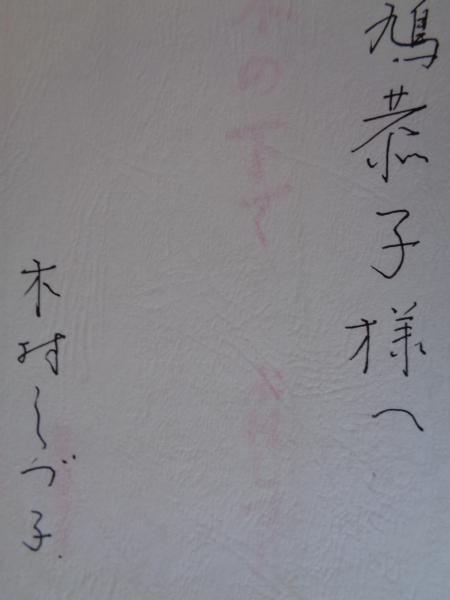 鳩恭子様へ
木村しづ子